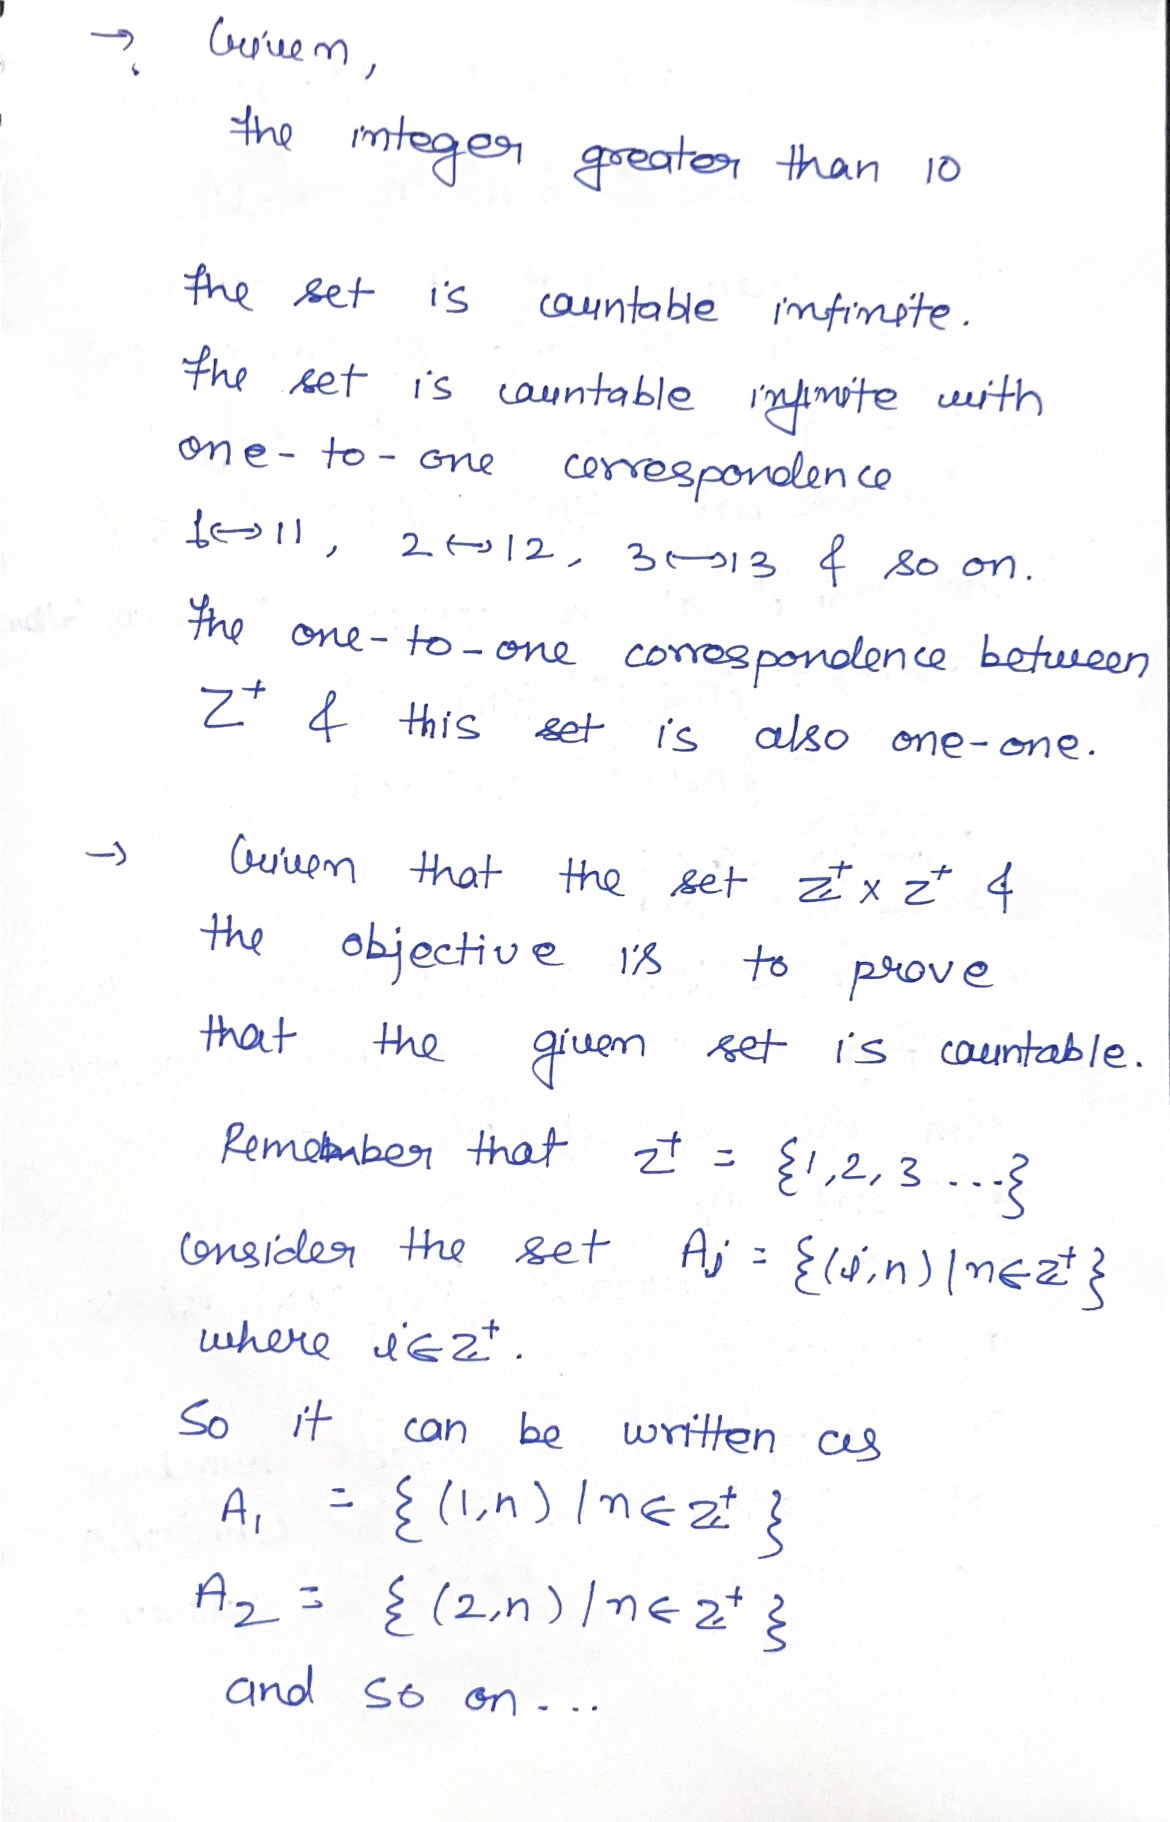 → Given,
the integer greater than 10
the set is countable infinite.
The set is countable infinite with
one-to-one correspondence
1↔11, 2↔12, 3↔13 & so on.
The one-to-one correspondence between
Z⁺ & this set is also one-one.
→ Given that the set Z⁺ x Z⁺ &
the objective is to prove
that the given set is countable.
Remember that Z⁺ = {1,2,3 ...}
consider the set Aj = {(i,n) | n∈Z⁺}
where i∈Z⁺.
So it can be written as
A₁ = {(1,n) | n∈Z⁺}
A₂ = {(2,n) | n∈Z⁺}
and so on...